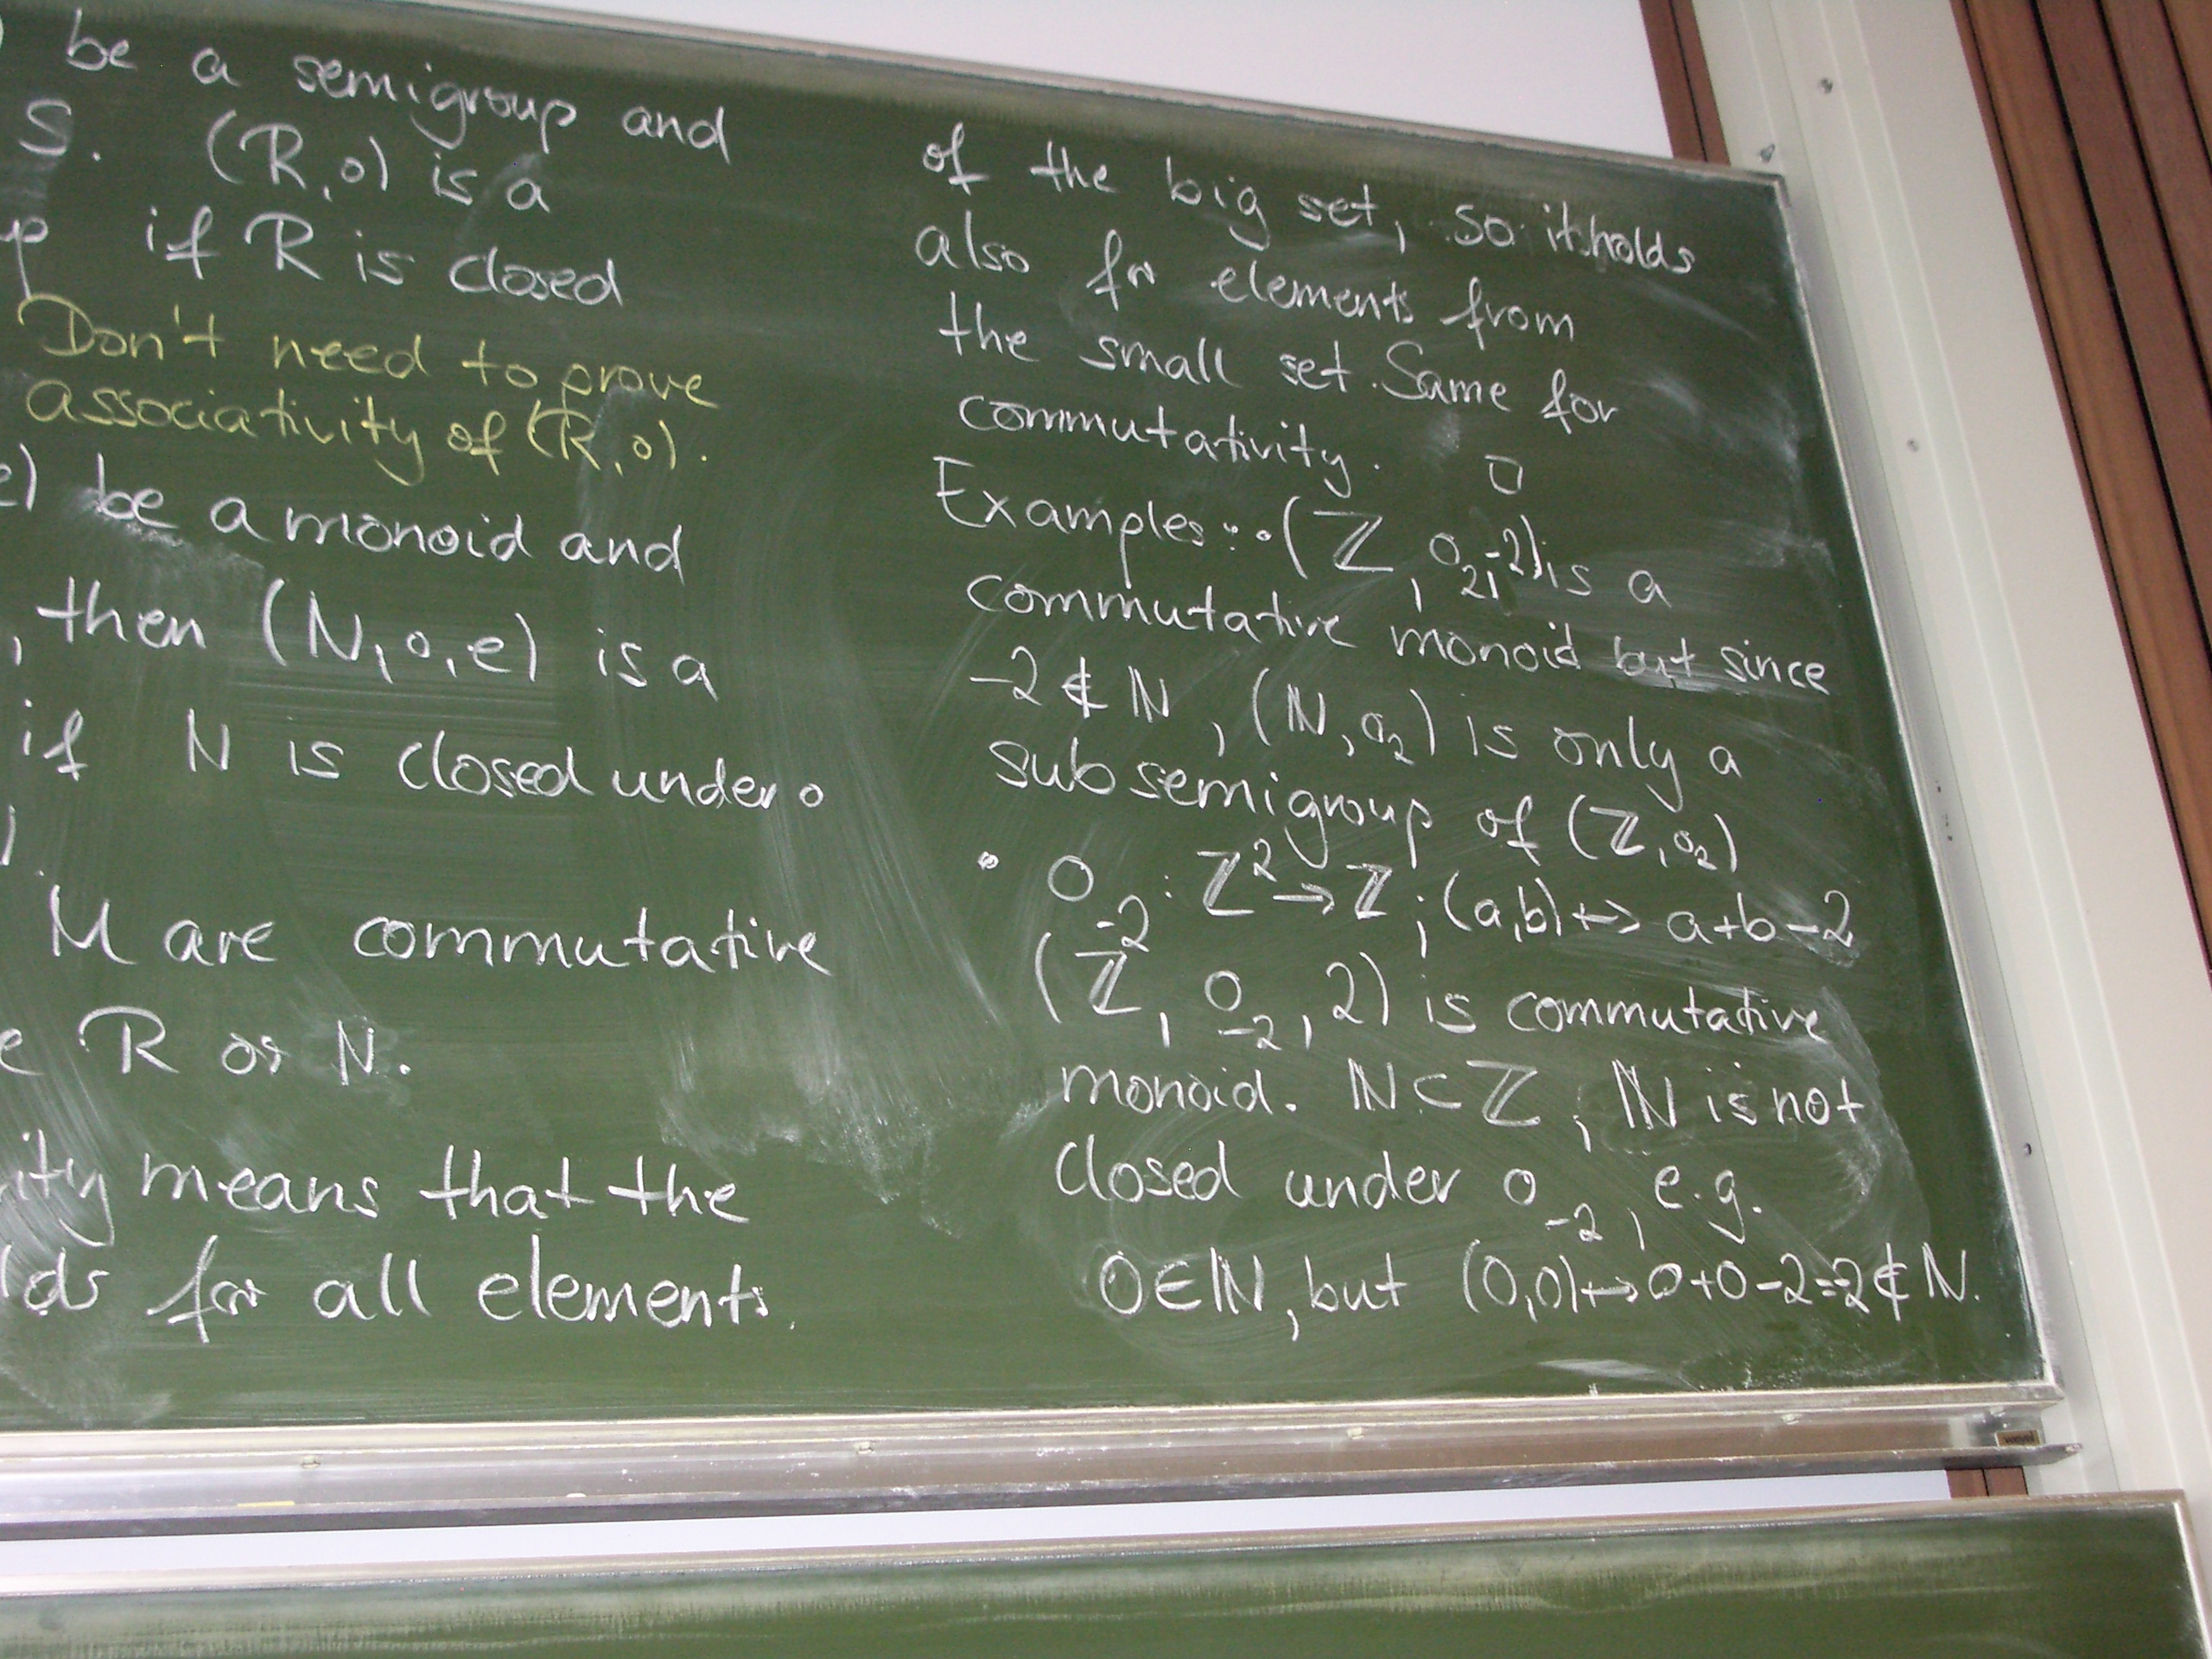 be a semigroup and
S. (R,∘) is a
if R is closed
Don't need to prove
associativity of (R,∘).
e) be a monoid and
, then (N,∘,e) is a
if N is closed under ∘
M are commutative
R or N.
means that the
for all elements
of the big set, so it holds
also for elements from
the small set. Same for
commutativity. □
Examples: • (ℤ, ∘₂, -2) is a
commutative monoid but since
-2 ∉ ℕ, (ℕ, ∘₂) is only a
subsemigroup of (ℤ, ∘₂)
• ∘₋₂ : ℤ² → ℤ ; (a,b) ↦ a+b-2
(ℤ, ∘₋₂, 2) is commutative
monoid. ℕ ⊂ ℤ, ℕ is not
closed under ∘₋₂, e.g.
0∈ℕ, but (0,0) ↦ 0+0-2=-2∉ℕ.